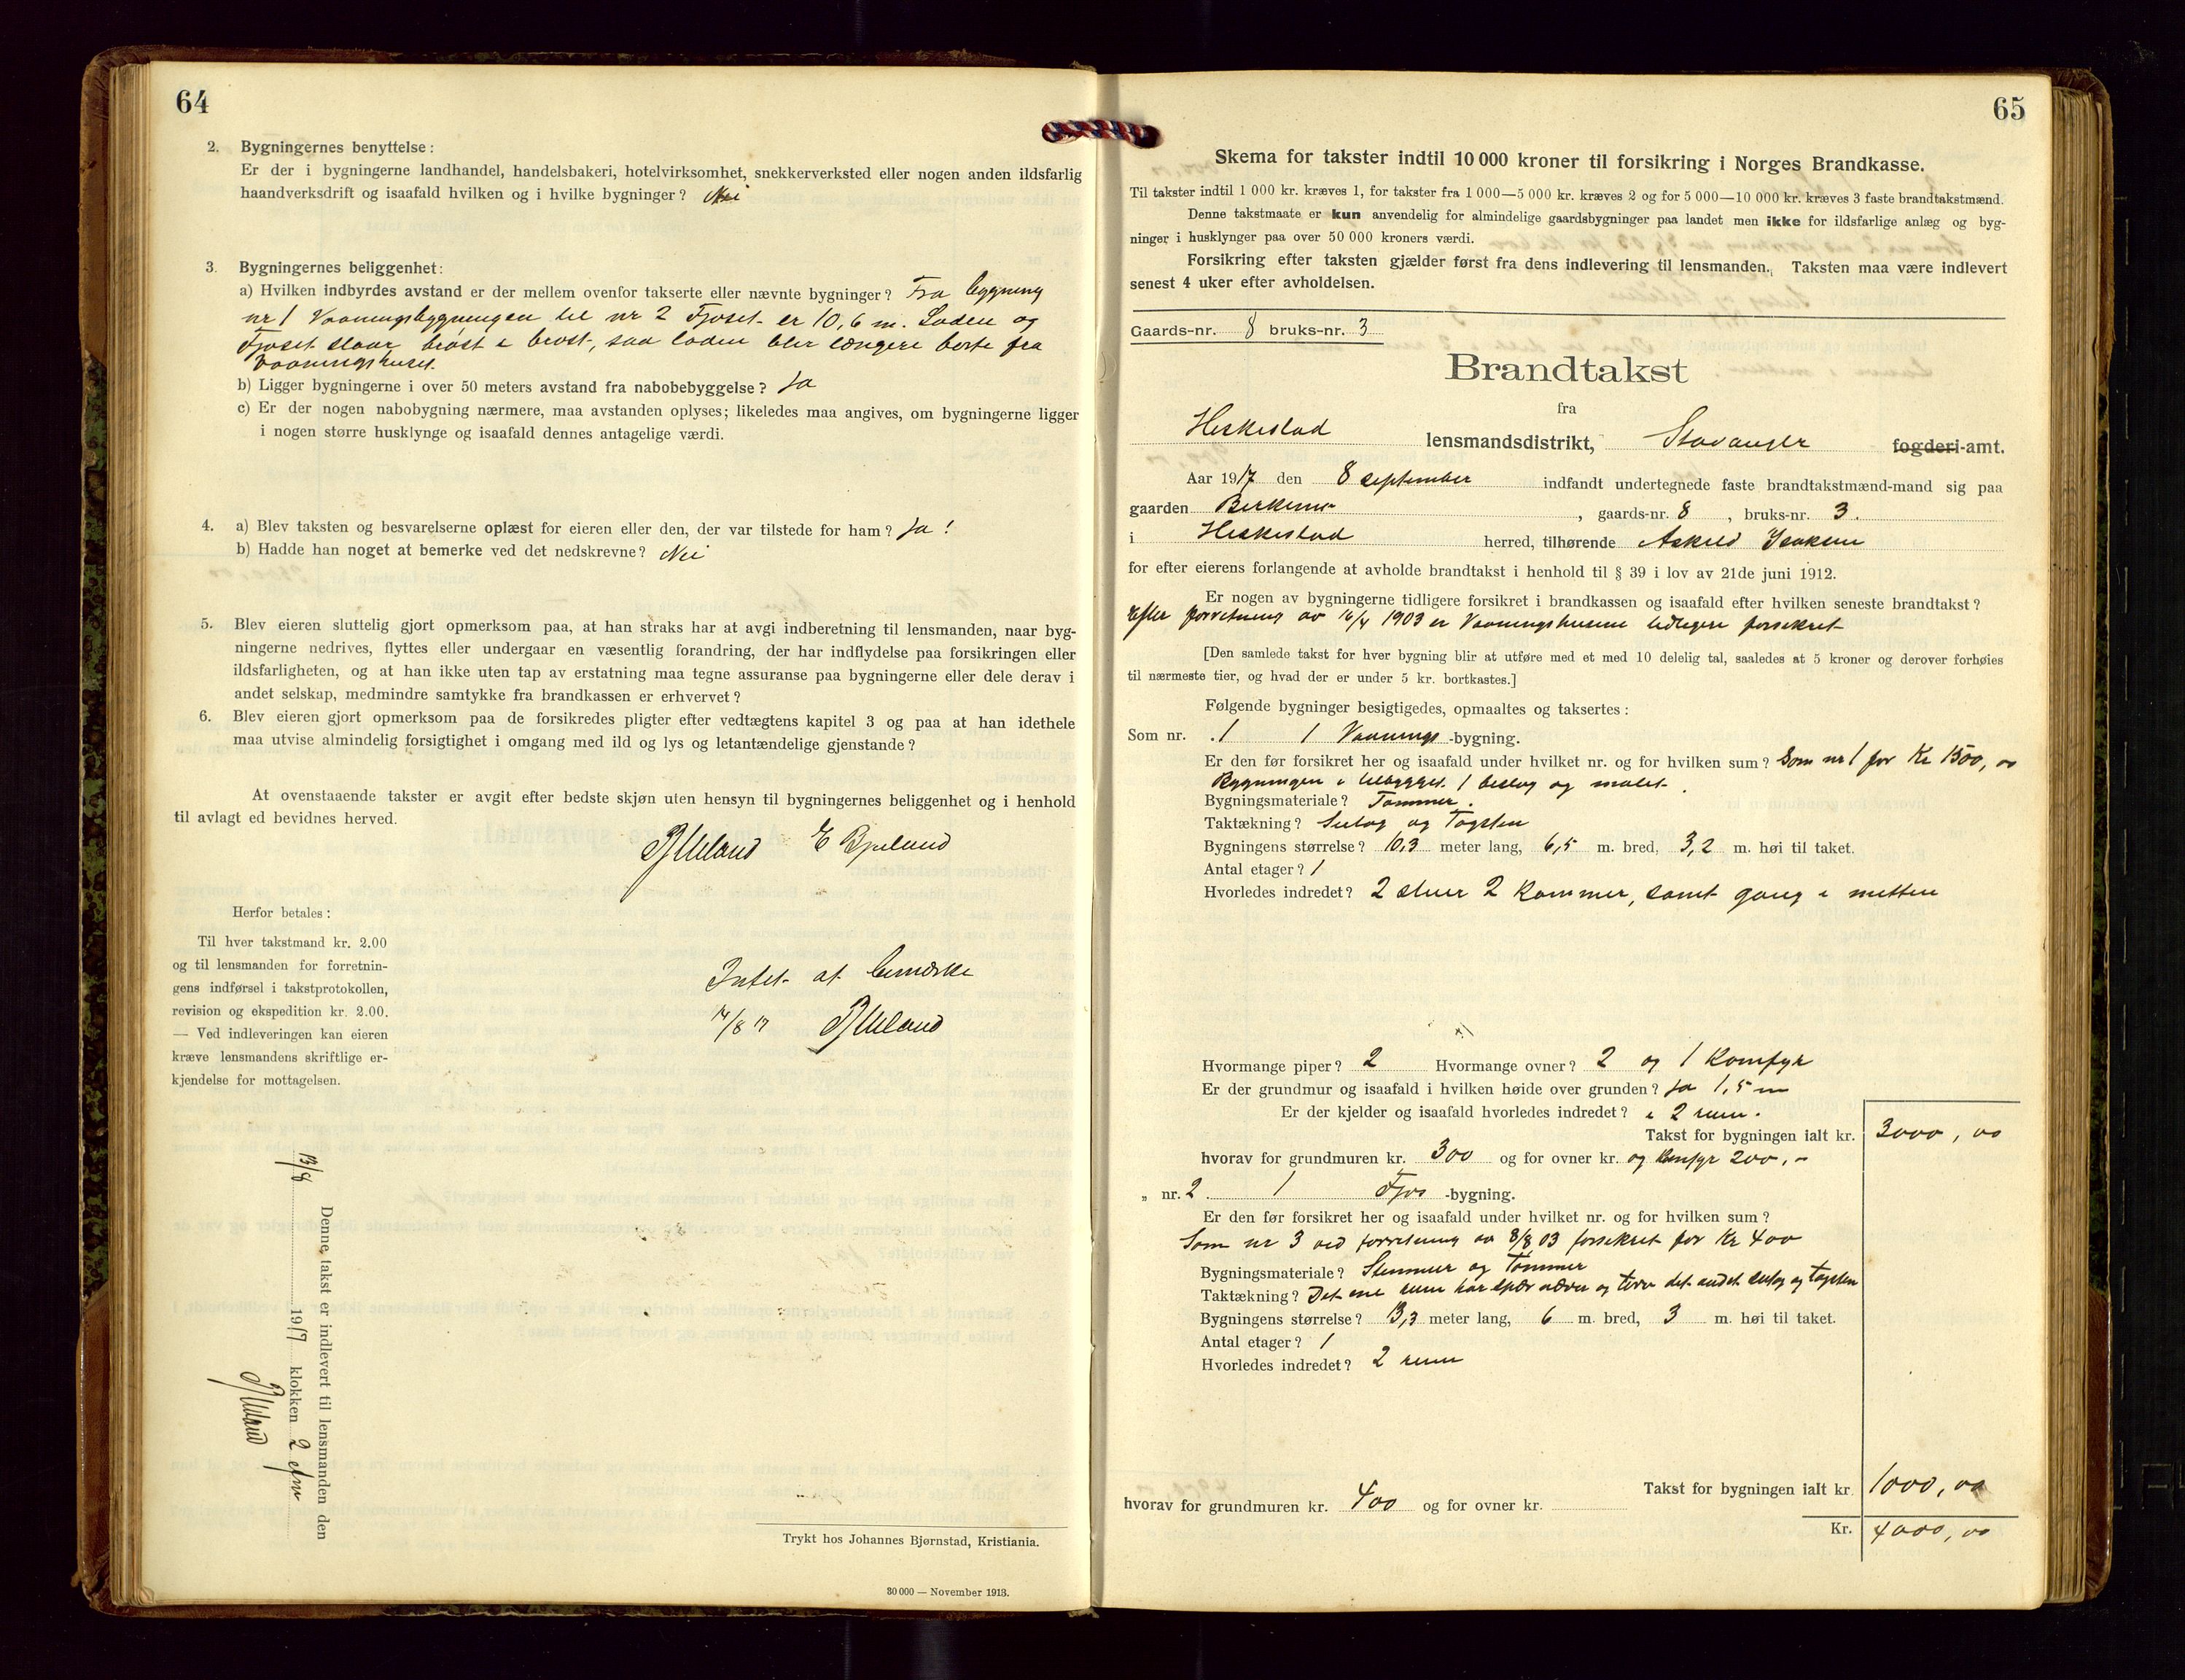 64
2. Bygningernes benyttelse:
Er der i bygningerne landhandel, handelsbakeri, hotelvirksomhet, snekkerverksted eller nogen anden ildsfarlig
haandverksdrift og isaafald hvilken og i hvilke bygninger? Nei
3. Bygningernes beliggenhet:
a) Hvilken indbyrdes avstand er der mellem ovenfor takserte eller nævnte bygninger? Fra bygning
nr 1 Vaaningsbygningen til nr 2 Fjøset er 10,6 m. Laden og
Fjøset staar brøst i brøst, saa laden blir længere borte fra
Vaaningshuset.
b) Ligger bygningerne i over 50 meters avstand fra nabobebyggelse? Ja
c) Er der nogen nabobygning nærmere, maa avstanden oplyses; likeledes maa angives, om bygningerne ligger
i nogen større husklynge og isaafald dennes antagelige værdi.
4. a) Blev taksten og besvarelserne oplæst for eieren eller den, der var tilstede for ham? Ja!
b) Hadde han noget at bemerke ved det nedskrevne? Nei
5. Blev eieren sluttelig gjort opmerksom paa, at han straks har at avgi indberetning til lensmanden, naar byg-
ningerne nedrives, flyttes eller undergaar en væsentlig forandring, der har indflydelse paa forsikringen eller
ildsfarligheten, og at han ikke uten tap av erstatning maa tegne assuranse paa bygningerne eller dele derav i
andet selskap, medmindre samtykke fra brandkassen er erhvervet?
6. Blev eieren gjort opmerksom paa de forsikredes pligter efter vedtægtens kapitel 3 og paa at han idethele
maa utvise almindelig forsigtighet i omgang med ild og lys og letantændelige gjenstande?
At ovenstaaende takster er avgit efter bedste skjøn uten hensyn til bygningernes beliggenhet og i henhold
til avlagt ed bevidnes herved.
E Bjelund
Herfor betales:
Til hver takstmand kr. 2.00
og til lensmanden for forretnin-
gens indførsel i takstprotokollen,
revision og ekspedition kr. 2.00.
— Ved indleveringen kan eieren
kræve lensmandens skriftlige er-
kjendelse for mottagelsen.
Intet at bemærke
Denne takst er indlevert til lensmanden den
13/8 1917 klokken 2 efm
Trykt hos Johannes Bjørnstad, Kristiania.
30 000 — November 1913.
65
Skema for takster indtil 10 000 kroner til forsikring i Norges Brandkasse.
Til takster indtil 1 000 kr. kræves 1, for takster fra 1 000—5 000 kr. kræves 2 og for 5 000—10 000 kr. kræves 3 faste brandtakstmænd.
Denne takstmaate er kun anvendelig for almindelige gaardsbygninger paa landet men ikke for ildsfarlige anlæg og byg-
ninger i husklynger paa over 50 000 kroners værdi.
Forsikring efter taksten gjælder først fra dens indlevering til lensmanden. Taksten maa være indlevert
senest 4 uker efter avholdelsen.
Gaards-nr. 8 bruks-nr. 3
Brandtakst
fra
Heskestad lensmandsdistrikt, Stavanger fogderi-amt.
Aar 1917 den 8 september indfandt undertegnede faste brandtakstmænd-mand sig paa
gaarden , gaards-nr. 8, bruks-nr. 3.
i Heskestad herred, tilhørende Askild Isaksen
for efter eierens forlangende at avholde brandtakst i henhold til § 39 i lov av 21de juni 1912.
Er nogen av bygningerne tidligere forsikret i brandkassen og isaafald efter hvilken seneste brandtakst?
Efter forretning av 16/4 1903 er Vaaningshusene tidligere forsikret
[Den samlede takst for hver bygning blir at utføre med et med 10 delelig tal, saaledes at 5 kroner og derover forhøies
til nærmeste tier, og hvad der er under 5 kr. bortkastes.]
Følgende bygninger besigtigedes, opmaaltes og taksertes:
Som nr. 1 1 Vaanings-bygning.
Er den før forsikret her og isaafald under hvilket nr. og for hvilken sum? Som nr 1 for Kr 1500,00
Bygningen er tilbygget, 1 beslag og malet.
Bygningsmateriale? Tømmer.
Taktækning? Sutag og Tagsten
Bygningens størrelse? 10,3 meter lang, 6,5 m. bred, 3,2 m. høi til taket.
Antal etager? 1
Hvorledes indredet? 2 stuer 2 Kammer, samt gang i mitten
Hvormange piper? 2 Hvormange ovner? 2 og 1 Komfyr
Er der grundmur og isaafald i hvilken høide over grunden? Ja 1,5 m
Er der kjelder og isaafald hvorledes indredet? i 2 rum.
Takst for bygningen ialt kr. 3000,00
hvorav for grundmuren kr. 300 og for ovner kr. og Komfyr 200,-
„ nr. 2 1 Fjøs-bygning.
Er den før forsikret her og isaafald under hvilket nr. og for hvilken sum?
Som nr 3 ved forretning av 8/8 03 forsikret for Kr 400
Bygningsmateriale? Stenmur og Tømmer
Taktækning? Det ene rum har spær næver og torv det andet sutag og tagsten
Bygningens størrelse? 13,3 meter lang, 6 m. bred, 3 m. høi til taket.
Antal etager? 1
Hvorledes indredet? 2 rum
Takst for bygningen ialt kr. 1000,00
hvorav for grundmuren kr. 400 og for ovner kr.
Kr. 4000,00